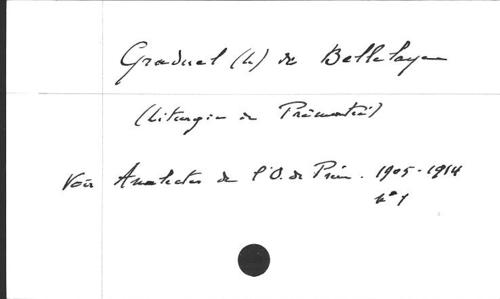 Graduel (Le) de Bellelaye
(Liturgie de Prémontré)
Voir Analectes de l'O. de Prém. 1905-1914
n° 1